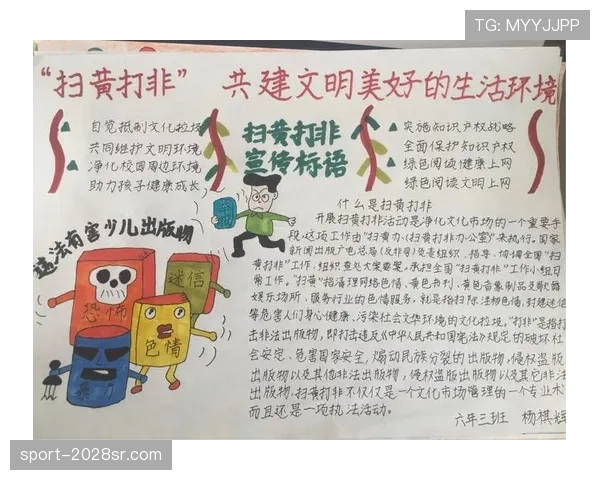 TG: MYYJJPP
“扫黄打非” 共建文明美好的生活环境
自觉抵制文化垃圾
共同维护文明环境
净化校园周边环境
助力孩子健康成长
扫黄打非
宣传标语
实施知识产权战略
全面保护知识产权
绿色阅读健康上网
绿色阅读文明上网
违法有害少儿出版物
恐怖
迷信
色情
暴力
什么是扫黄打非
开展扫黄打非活动是净化文化市场的一个重要手
段,这项工作由“扫黄办(扫黄打非办公室)”来执行。国家
新闻出版广电总局(反非司)负责组织、指导、协调全国“扫
黄打非”工作,组织查处大案要案,承担全国“扫黄打非”工作小组日
常工作。“扫黄”指清理网络色情、黄色书刊、黄色音像制品及歌舞
娱乐场所、服务行业的色情服务,就是指扫除淫秽色情、封建迷信
等危害人们身心健康、污染社会文华环境的文化垃圾。“打非”是指打
击非法出版物,即打击违反《中华人民共和国宪法》规定的破坏社
会安定、危害国家安全、煽动民族分裂的出版物,侵权盗版
出版物以及其他非法出版物,侵权盗版出版物以及其它非法
出版物,扫黄打非不仅仅是一个文化市场管理的一个专业术
而且还是一项执法活动。
六年三班 杨棋辉
sport-2028sr.com